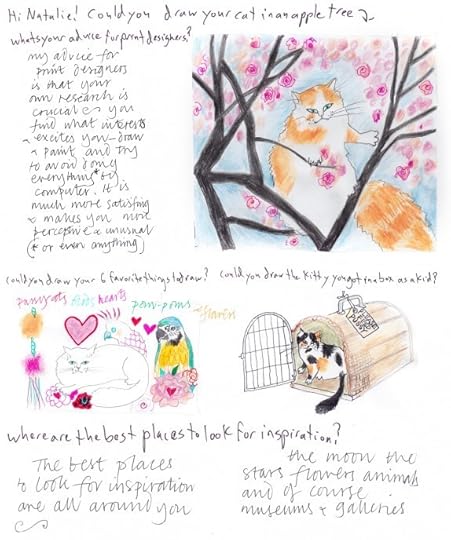 Hi Natalie! Could you draw your cat in an apple tree
whats your advice for print designers?
my advice for
print designers
is that your
own research is
crucial you
find what interests
excites you-draw
& paint and try
to avoid doing
everything* by
computer. It is
much more satisfying
& makes you more
perceptive & unusual
(* or even anything)
could you draw your 6 favorite things to draw?
pussycats birds hearts
pom-poms
flowers
could you draw the kitty you got in a box as a kid?
where are the best places to look for inspiration?
The best places
to look for inspiration
are all around you
the moon the
stars flowers animals
and of course
museums & galleries